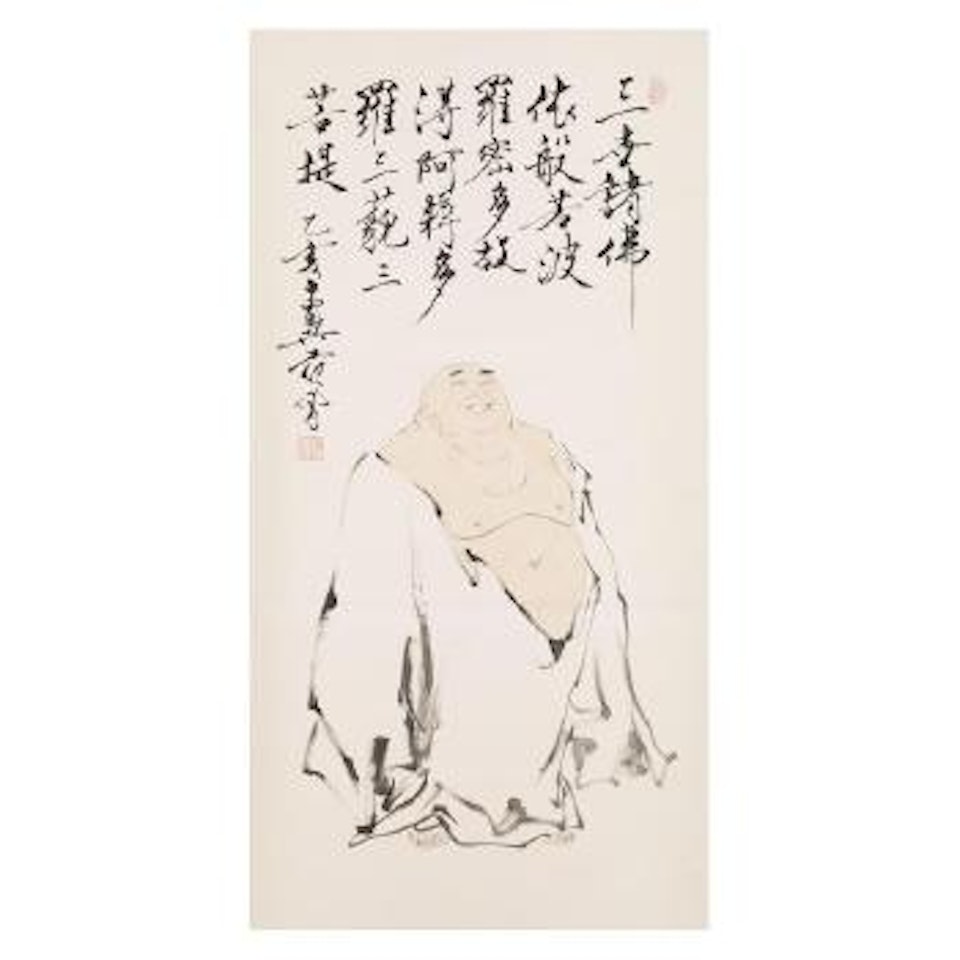 三世諸佛
依般若波
羅密多故
得阿耨多
羅三藐三
菩提 乙亥 范曾